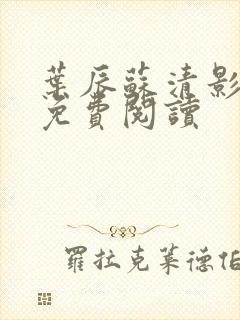 葉辰蘇清影
免費閱讀
羅拉克萊德伯